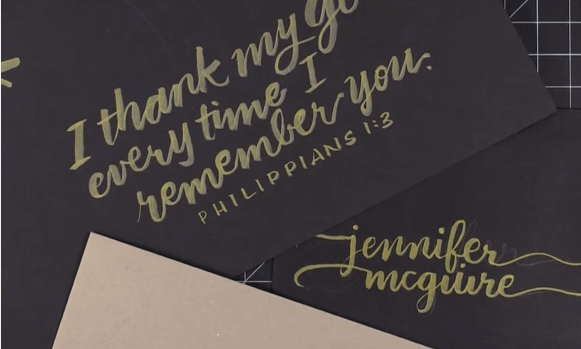 I thank my
every time I
remember you.
PHILIPPIANS 1:3
jennifer
mcguire